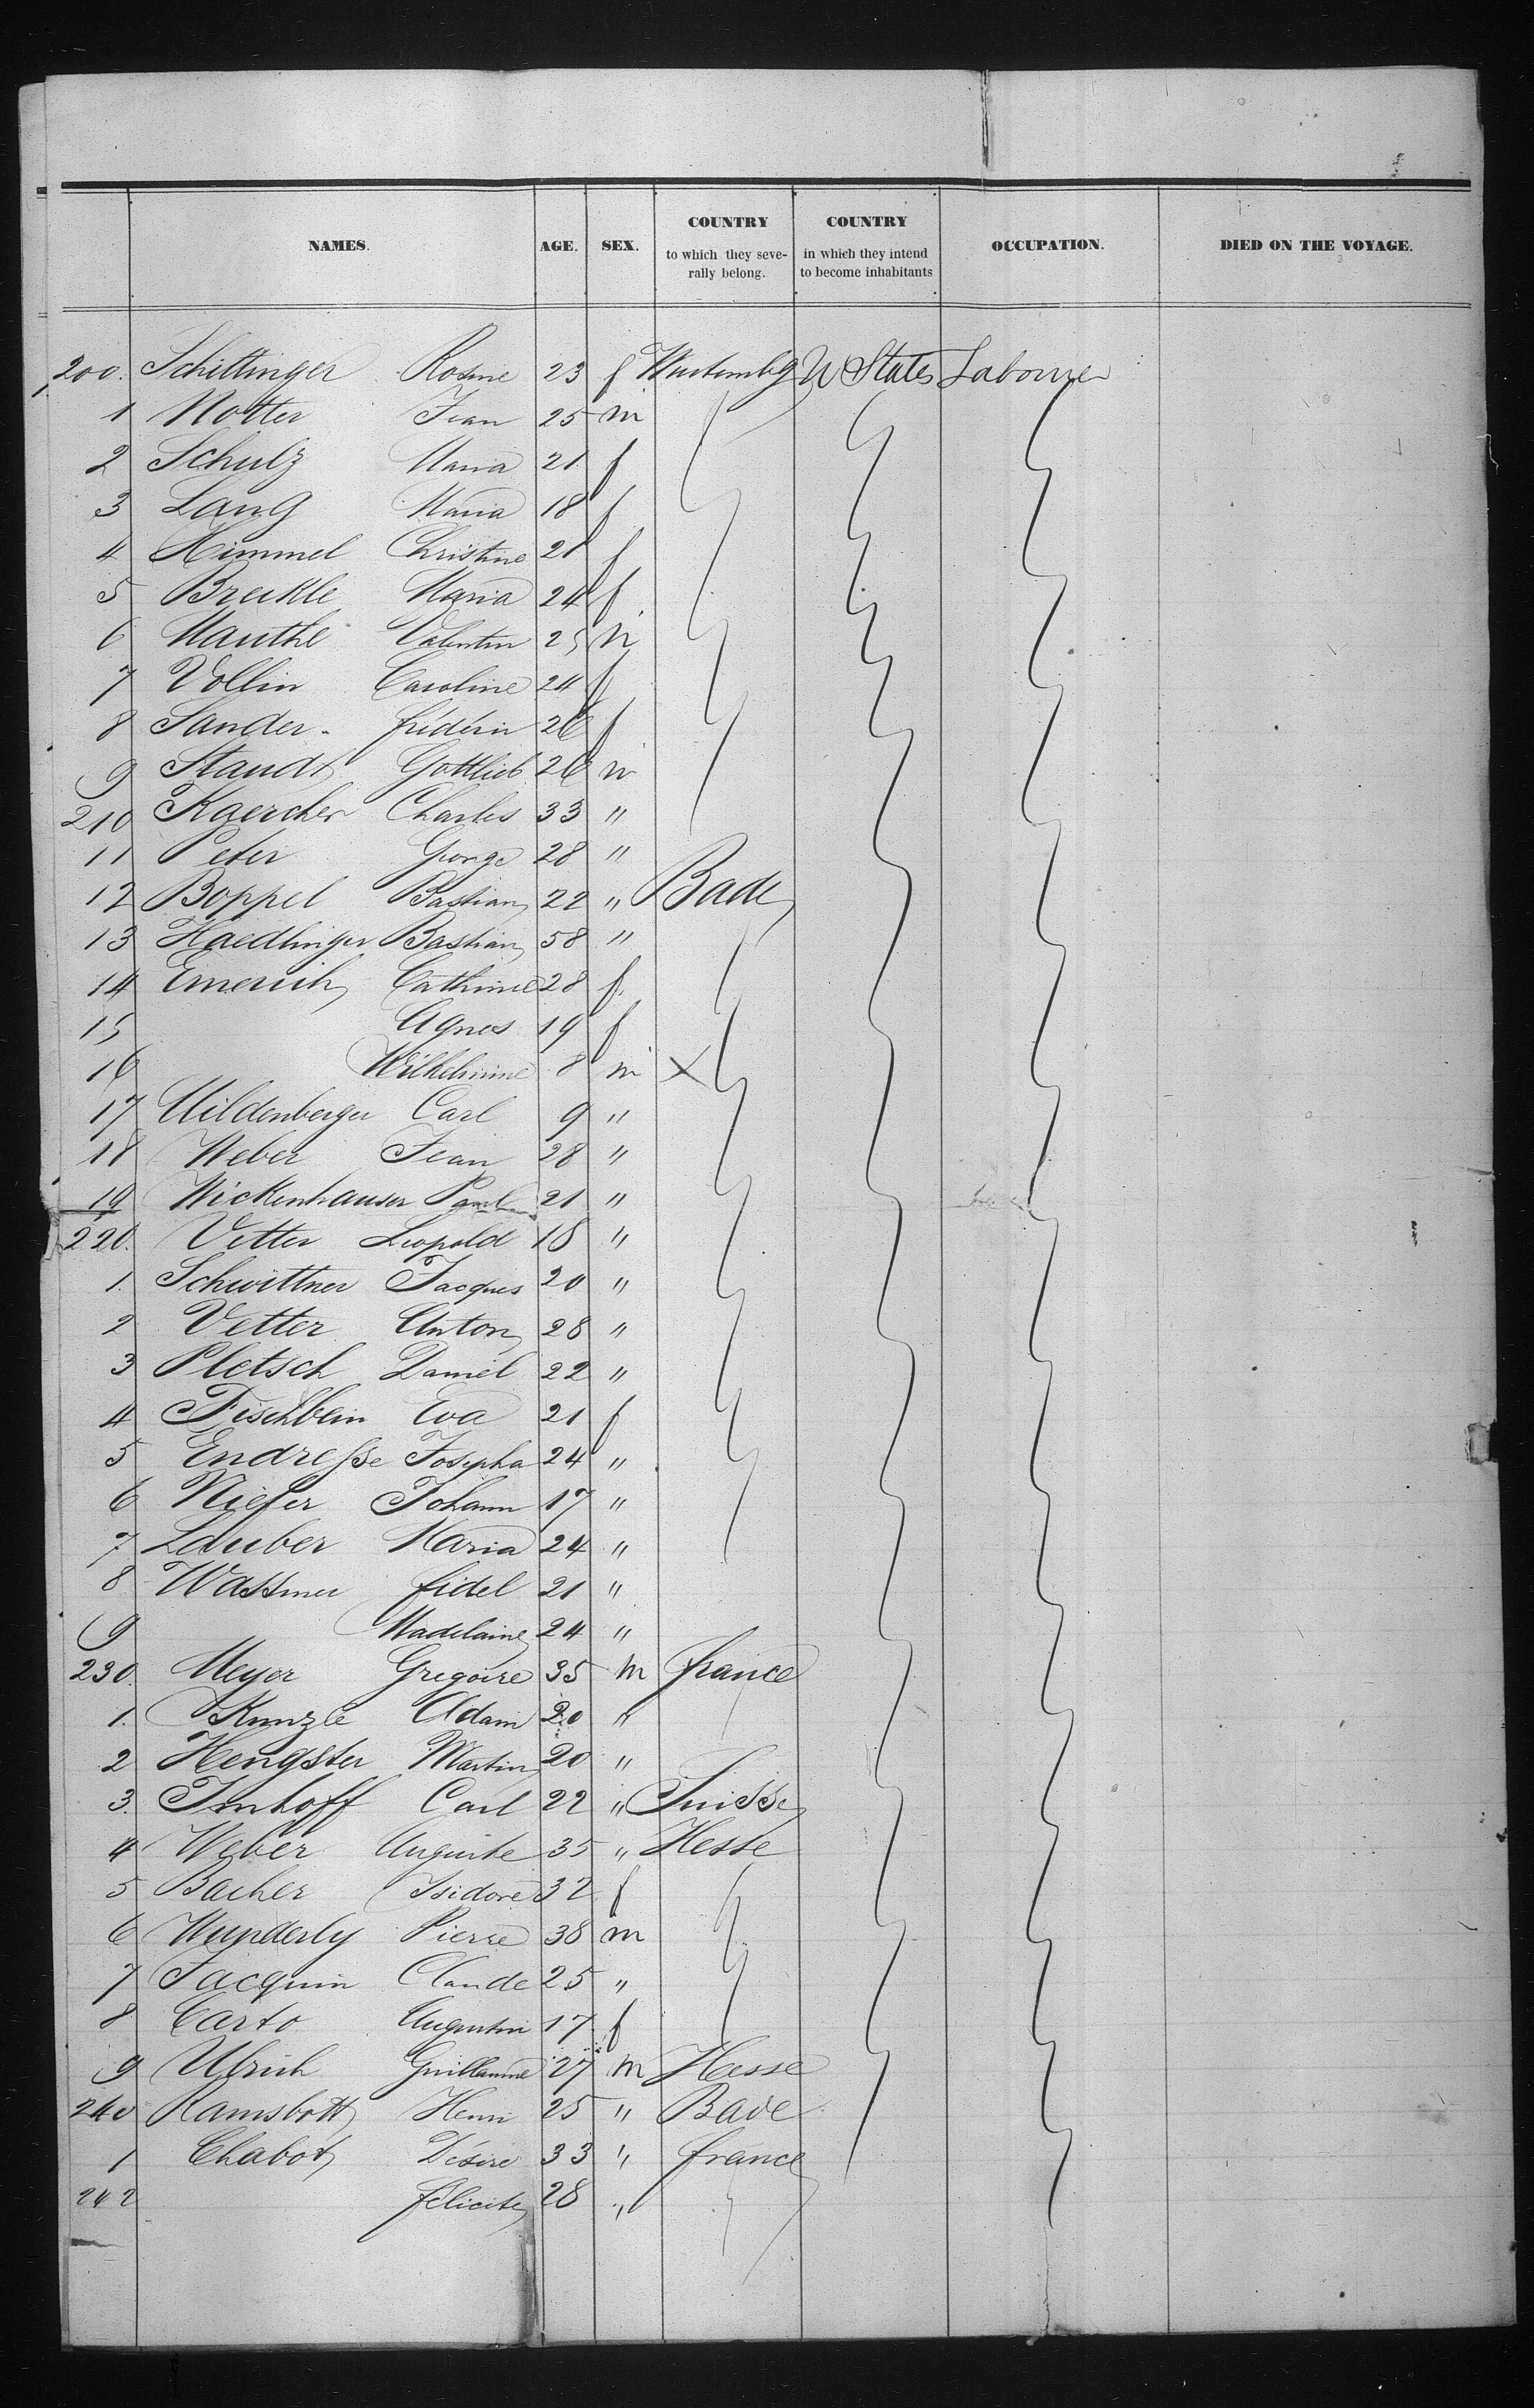 NAMES. AGE. SEX. COUNTRY to which they seve- rally belong. COUNTRY in which they intend to become inhabitants OCCUPATION. DIED ON THE VOYAGE.
200. Schittinger Rosine 23 f Wurtembg U States Labourer
1 Notter Jean 25 m
2 Schulz Maria 21 f
3 Lang Maria 18 f
4 Himmel Christine 21 f
5 Breikle Maria 24 f
6 Mauthe Valentin 25 m
7 Vollin Caroline 24 f
8 Sander frederin 26 f
9 Staudt Gottlieb 26 m
210 Kaercher Charles 33 "
11 Peter George 28 "
12 Boppel Bastian 22 " Bade
13 Haedlinger Bastian 58 "
14 Emerich Cathrine 28 f.
15 Agnes 19 f
16 Wilhelmine 8 m X
17 Uildenberger Carl 9 "
18 Weber Jean 28 "
19 Wickenhauser Paul 21 "
220. Vetter Leopold 18 "
1. Schwittner Jacques 20 "
2 Vetter Anton 28 "
3 Pletsch Daniel 22 "
4 Fischbein Eva 21 f
5 Endresse Josepha 24 "
6 Kiefer Johann 17 "
7 Lauber Maria 24 "
8 Wassmer fidel 21 "
9 Madelaine 24 "
230. Meyer Gregoire 35 m france
1. Kunzle Adam 20 "
2 Hengster Martin 20 "
3. Imhoff Carl 22 " Suisse
4 Weber Auguste 35 " Hesse
5 Bacher Isidore 32 f
6 Wunderly Pierre 38 m
7 Jacquin Claude 25 "
8 Carto Augustin 17 f
9 Ulrich Guillaume 27 m Hesse
240 Ramsbott Henri 25 " Bade
1 Chabot Désiré 33 " france
242 félicite 28 "